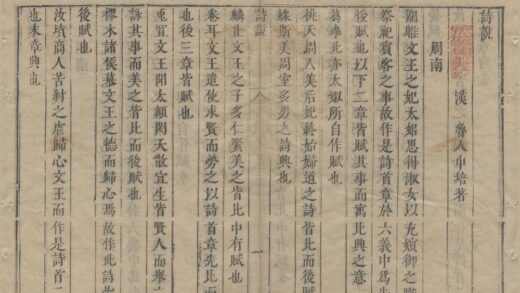 詩說
漢 魯人申培著
周南
關雎文王之妃太姒思得淑女以充嬪御之職
祭祀賓客之事故作是詩首章於六義中爲先
後賦也以下二章皆賦其事而寓比興之意
葛蕈此亦太姒所自作賦也
桃夭周人美后妃終始婦道之詩皆比而後賦
螽斯美周室多男之詩興也
詩說 一
麟止文王之子多仁賢美之皆比中有賦也
卷耳文王遣使求賢而勞之以詩首章先比而
也後三章皆賦也
兔罝文王聞太顛閎夭散宜生皆賢人而舉
詠其事而美之皆比而後賦也
樛木諸侯慕文王之德而歸心焉故作此詩
後賦也
汝墳商人苦紂之虐歸心文王而作是詩首二
也末章興也